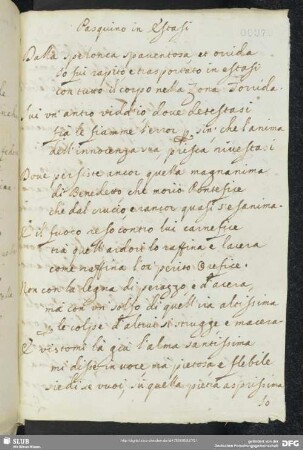 Pasquino in Estasi
Dalla spelonca spaventosa, et orrida
Io fui rapito e trasportato in estasi
con tutto il corpo nella Zona Torrida
un antro vidd'io dove detestasi
tra le fiamme l'error, sin che l'anima
dell'innocenza una prisca rivestasi
Dove persiste ancor quella magnanima
di Benedetto che morio Pontefice
che dal crucio e rancor quasi s'esanima.
E il fuoco steso contro lui carnefice
raffina e lacera
come raffina l'or perito Orefice.
Non con la legna di perazzo e d'acera,
ma con un solfo di quell'
le colpe d'altrui strugge e macera
E vistomi la già l'alma santissima
mi disse in voce ma pietosa e flebile
siedi se vuoi, in quella pietra asprissima
Io
SLUB
Wir führen Wissen.
DFG